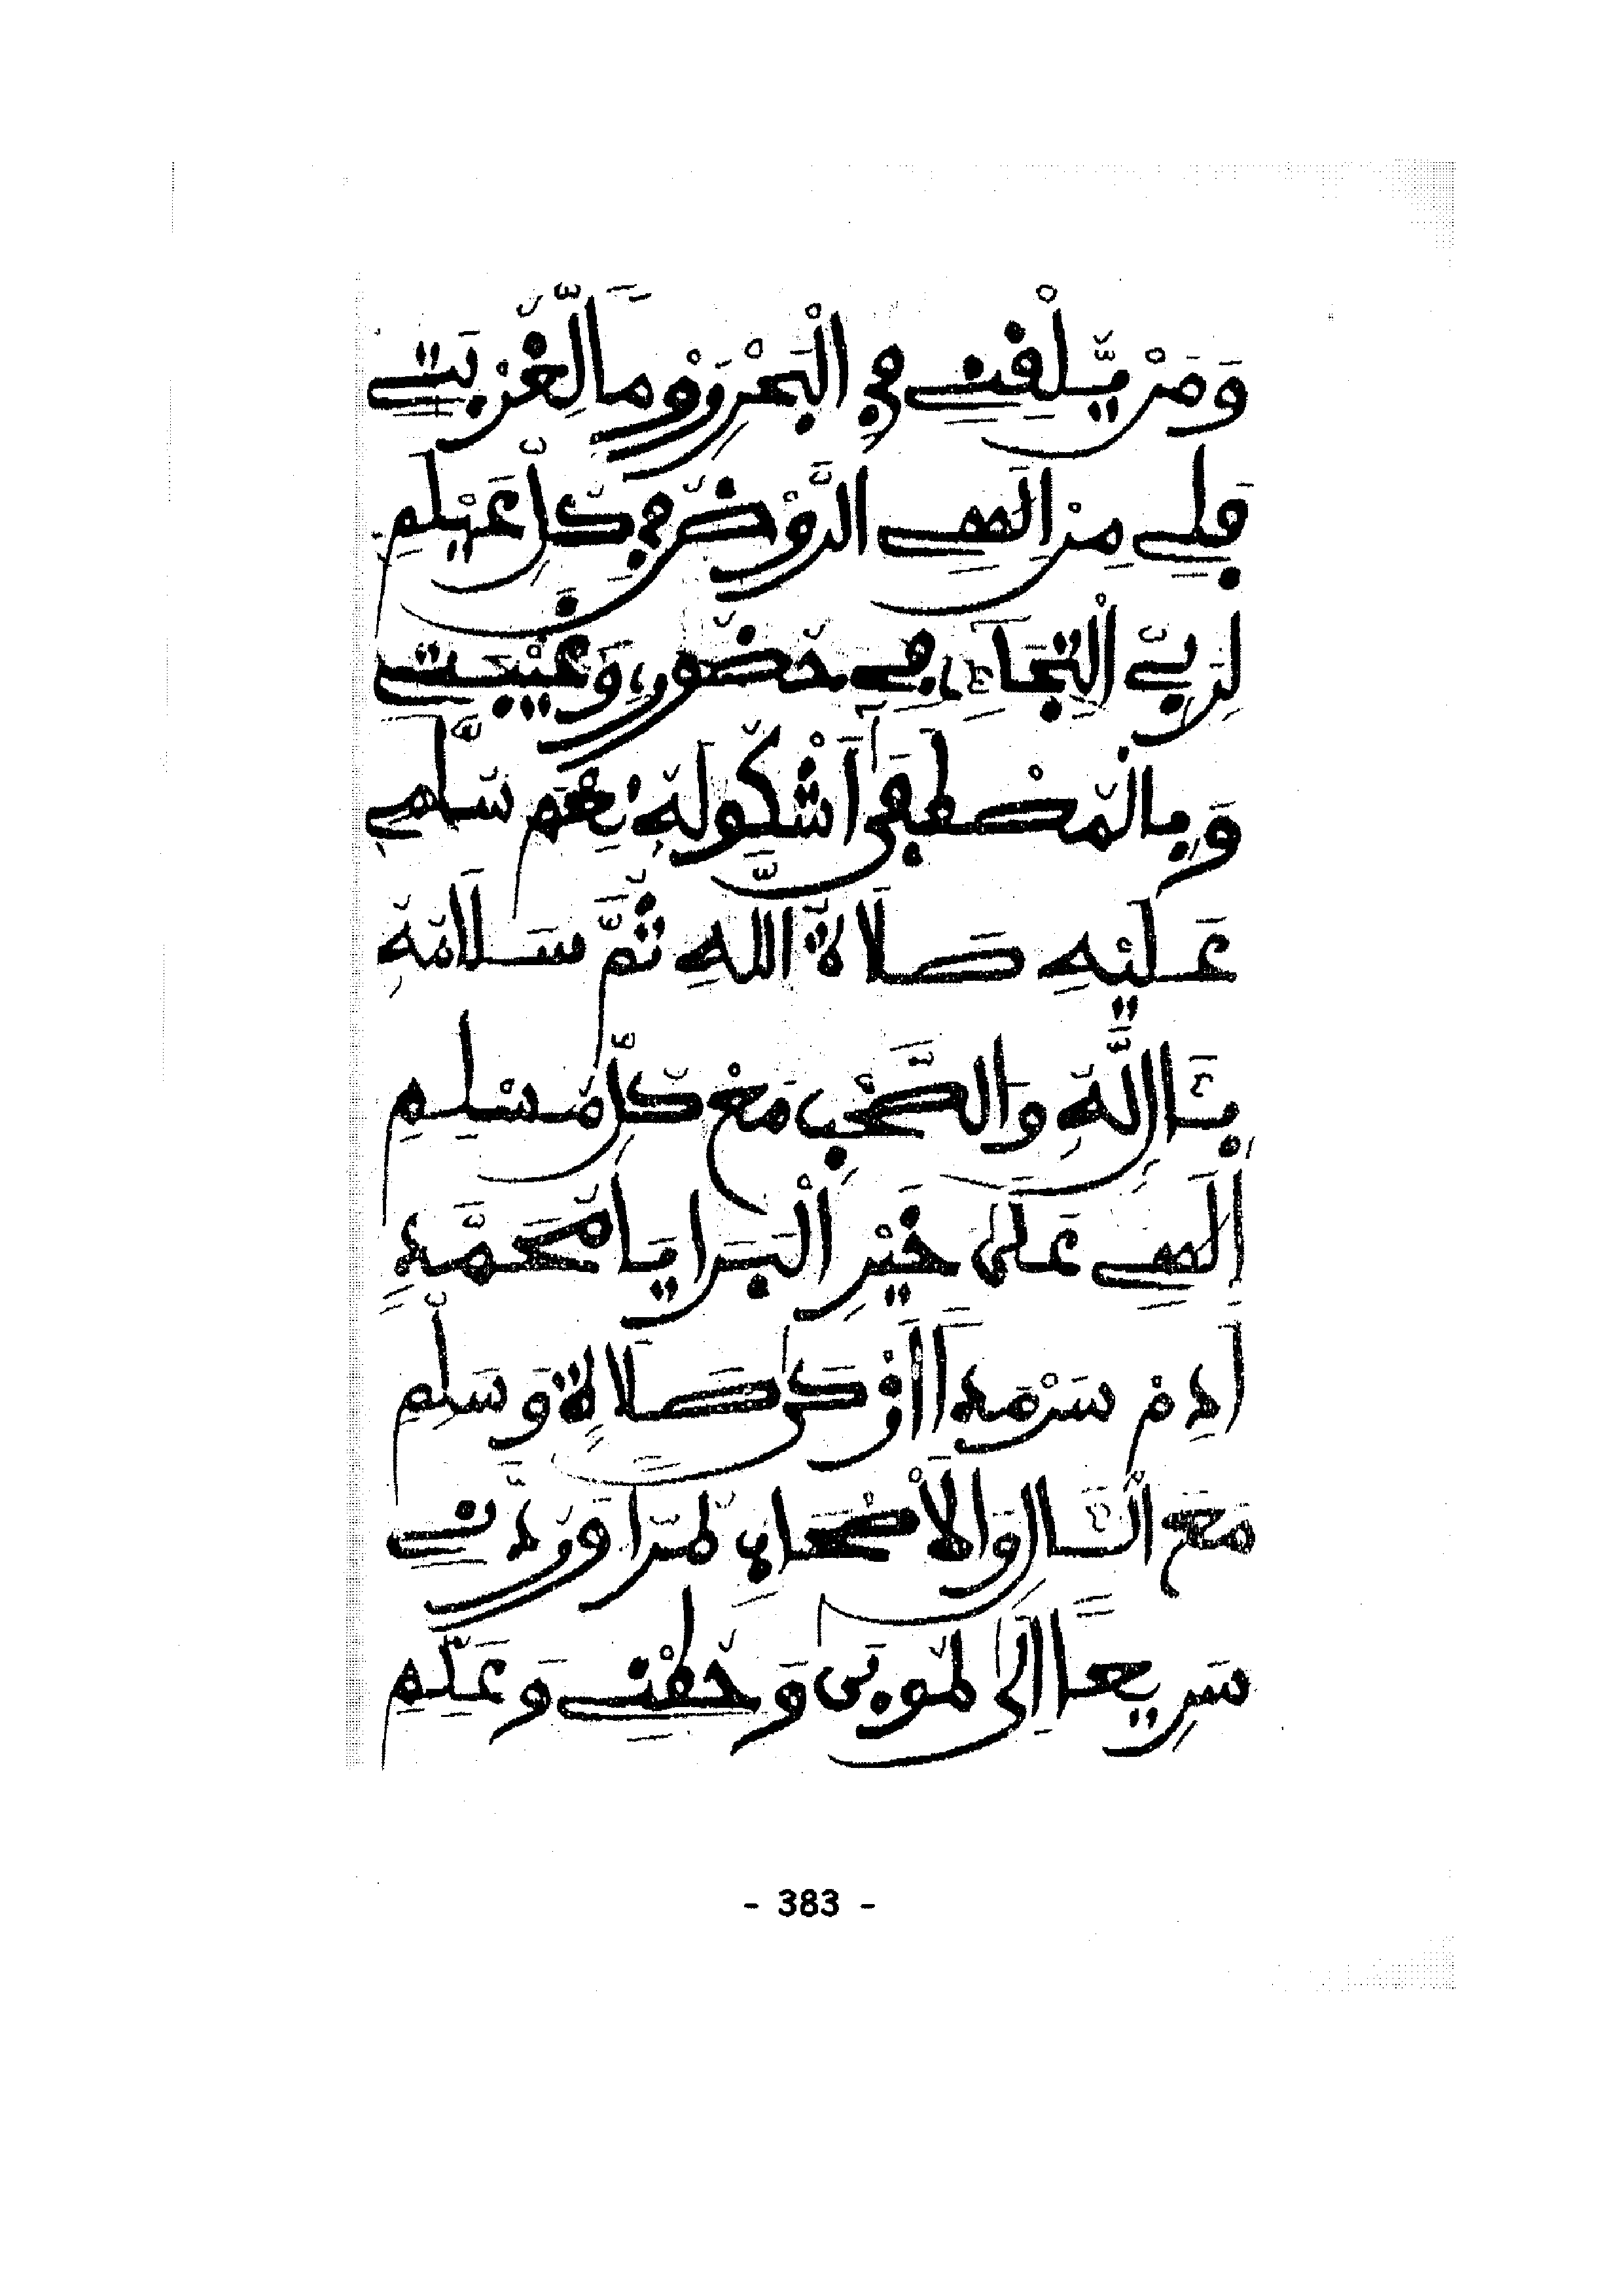 وَمَنْ يَّلْقَنِي فِي الْبَحْرِ يَوْمًا لِغُرْبَتِي
فَلِي مِنْ إِلَهِي الرَّوْضُ فِي كُلِّ عَيْلَمِ
لِرَبِّي الْتِجَاءِي فِي حُضُورٍ وَغَيْبَتِي
وَبِالْمُصْطَفَى أَشْكُو لَهُ نِعْمَ سُلَّمِي
عَلَيْهِ صَلَاةُ اللَّهِ ثُمَّ سَلَامُهُ
بِآلٍ لَّهُ وَالصَّحْبِ مَعْ كُلِّ مُسْلِمِ
إِلَهِي عَلَى خَيْرِ الْبَرَايَا مُحَمَّدٍ
أَدِمْ سَرْمَدًا أَزْكَى صَلَاةٍ وَسَلِّمِ
مَعَ الْآلِ وَالْأَصْحَابِ طُرًّا وَرُدَّنِي
سَرِيعًا إِلَى طُوبَى وَحُطْنِي وَعَلِّمِ
- 383 -